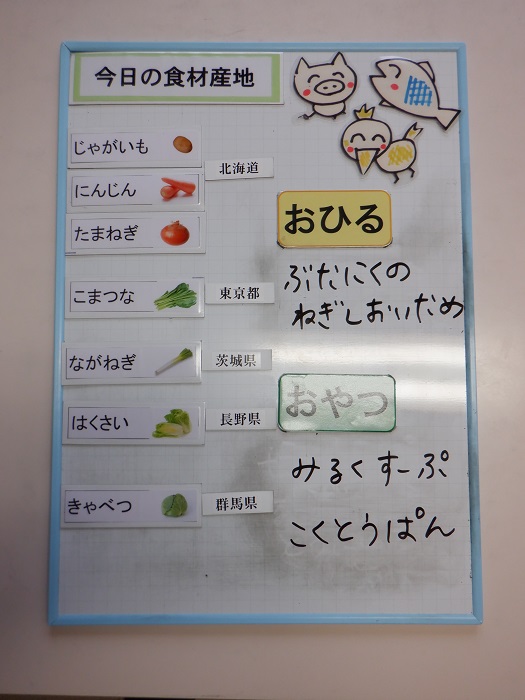 今日の食材産地
じゃがいも
にんじん
北海道
たまねぎ
こまつな
東京都
ながねぎ
茨城県
はくさい
長野県
きゃべつ
群馬県
おひる
ぶたにくの
ねぎしおいため
おやつ
みるくすーぷ
こくとうぱん